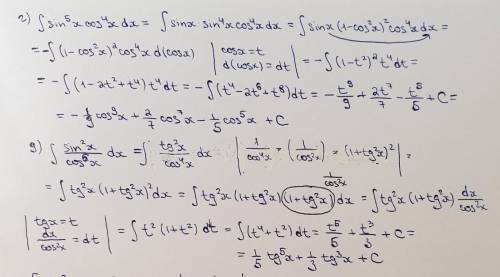 г) ∫ sin⁵x cos⁴x dx = ∫ sinx sin⁴x cos⁴x dx = ∫ sinx (1-cos²x)² cos⁴x dx =
= -∫ (1-cos²x)² cos⁴x d(cosx) | cosx = t d(cosx) = dt | = -∫ (1-t²)² t⁴ dt =
= -∫ (1-2t²+t⁴) t⁴ dt = -∫ (t⁴-2t⁶+t⁸) dt = -t⁹/9 + 2t⁷/7 - t⁵/5 + C =
= -1/9 cos⁹x + 2/7 cos⁷x - 1/5 cos⁵x + C
g) ∫ sin²x/cos⁶x dx = ∫ tg²x/cos⁴x dx | 1/cos⁴x = (1/cos²x)² = (1+tg²x)² | =
1/cos²x
= ∫ tg²x (1+tg²x)² dx = ∫ tg²x (1+tg²x) (1+tg²x) dx = ∫ tg²x (1+tg²x) dx/cos²x
| tgx = t dx/cos²x = dt | = ∫ t² (1+t²) dt = ∫ (t⁴+t²) dt = t⁵/5 + t³/3 + C =
= 1/5 tg⁵x + 1/3 tg³x + C